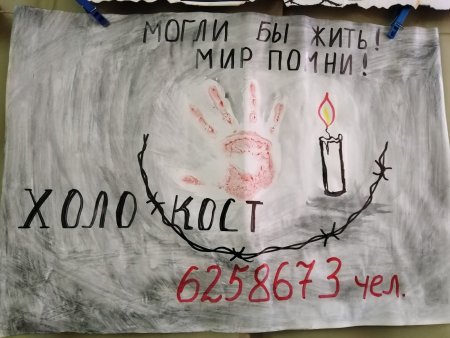 МОГЛИ БЫ ЖИТЬ!
МИР ПОМНИ!
ХОЛОКОСТ
6258673 чел.